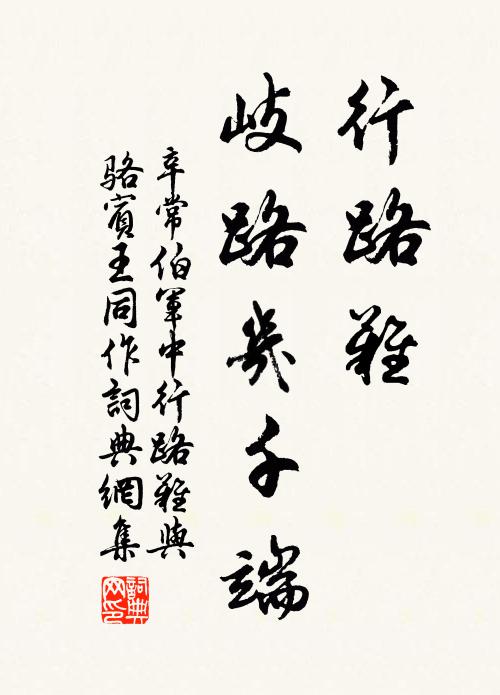 行路難
歧路幾千端
辛常伯軍中行路難與
駱賓王同作詞典網集
詞典網印